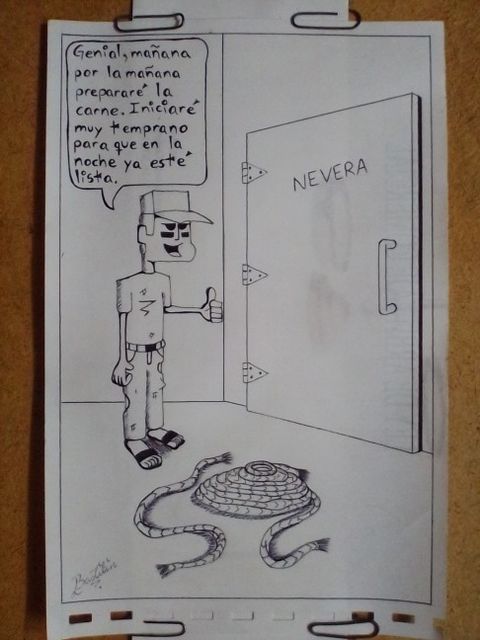 Genial, mañana
por la mañana
prepararé la
carne. Iniciaré
muy temprano
para que en la
noche ya esté
lista.
NEVERA